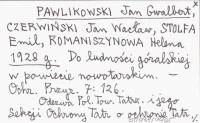 PAWLIKOWSKI Jan Gwalbert,
CZERWIŃSKI Jan Wacław, STOLFA
Emil, ROMANISZYNOWA Helena
1928 g. Do ludności góralskiej
w powiecie nowotarskim. –
Ochr. Przyr. 7: 126.
Odezwa Pol. Tow. Tatrz. i jego
Sekcji Ochrony Tatr o ochronie Tatr.